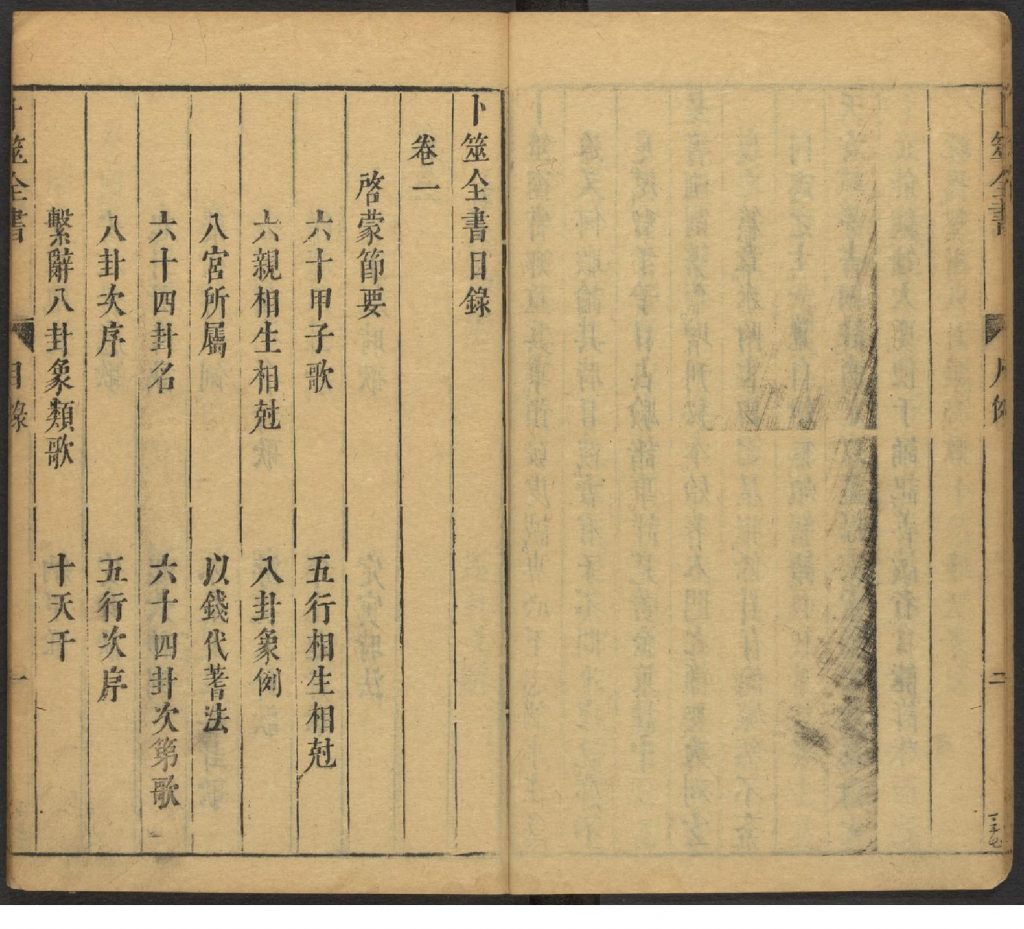 卜筮全書
凡例
二
卜筮全書目錄
卷一
啓蒙節要
六十甲子歌
五行相生相尅
六親相生相尅
八卦象例
八宮所屬
以錢代蓍法
六十四卦名
六十四卦次第歌
八卦次序
五行次序
繫辭八卦象類歌
十天干
卜筮全書
目錄
一